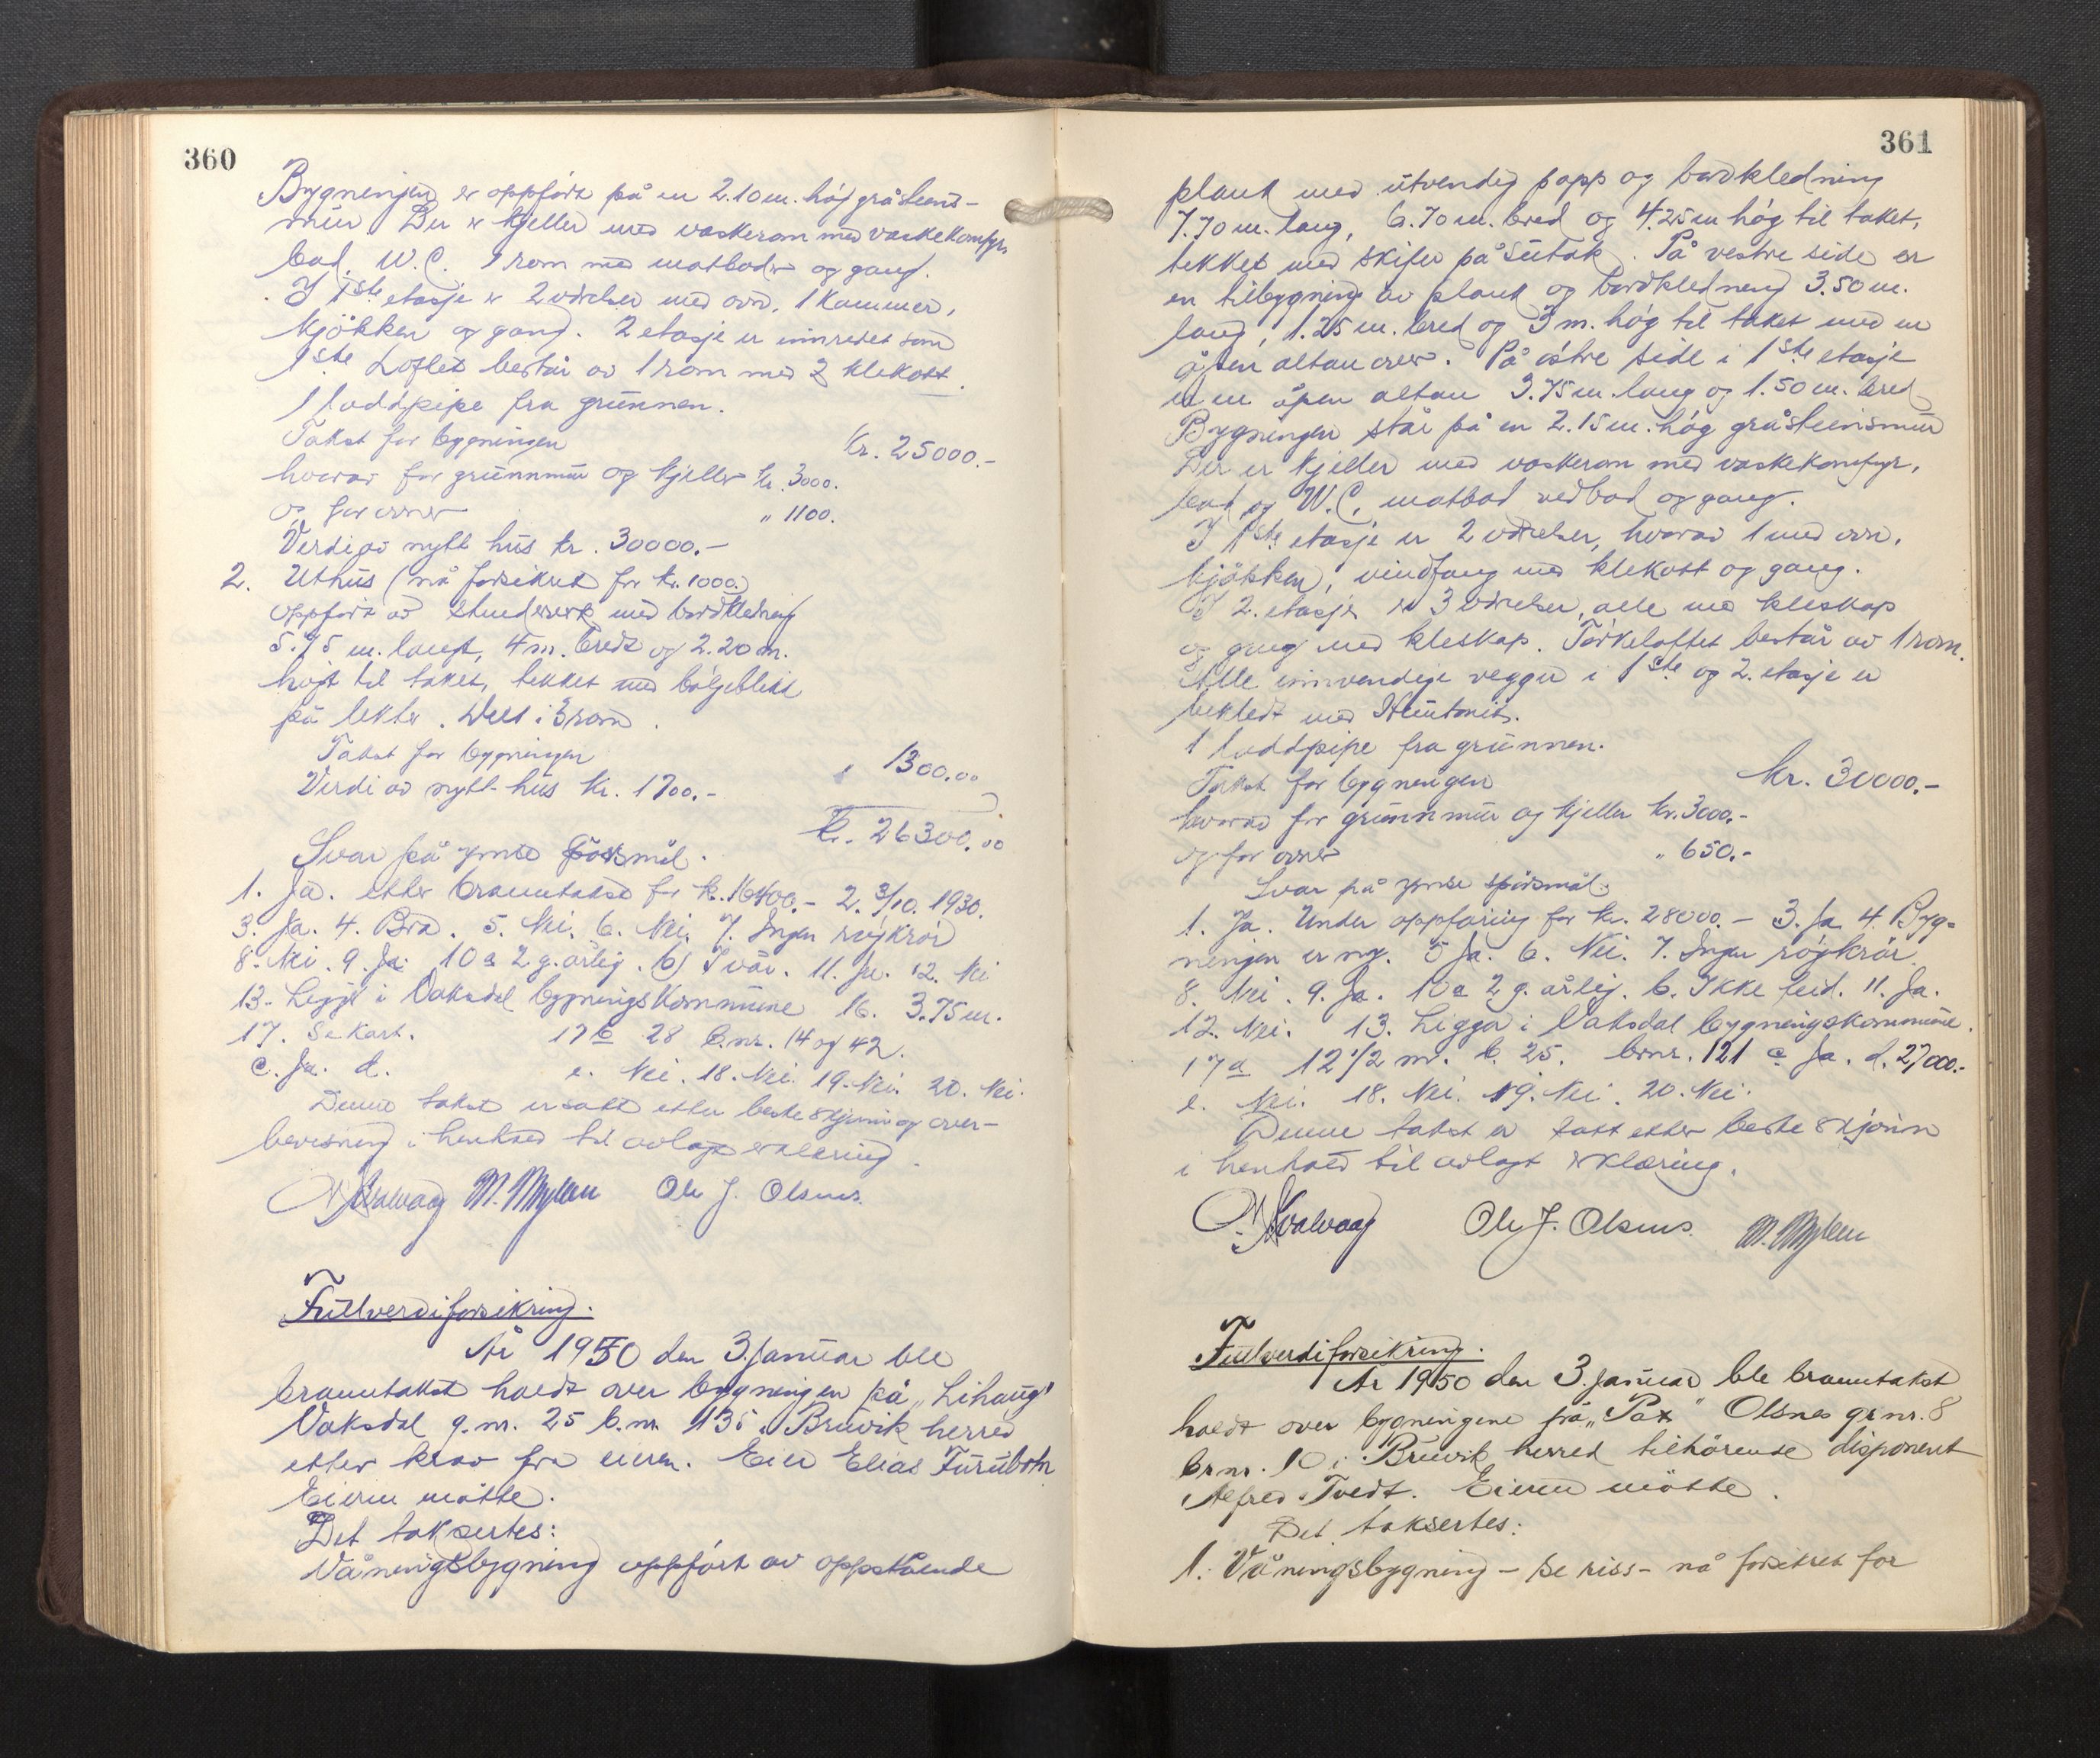 360
Bygningen er oppført på en 2.10 m. høg gråsteins-
mur. Der er kjeller med vaskerom med vaskekomfyr,
bad, W.C. 1 rom med matboder og gang.
I 1ste etasje er 2 værelser med ovn, 1 kammer,
kjøkken og gang. 2 etasje er innredet som
1ste Loftet består av 1 rom med 2 klekott.
1 loddpipe fra grunnen.
Takst for bygningen Kr. 25000.-
hvorav for grunnmur og kjeller kr. 3000.
og for ovner " 1100.
Verdi av nytt hus kr. 30000.-
2. Uthus (nå forsikret for kr. 1000.)
oppført av stenderverk med bordkledning
5.75 m. langt, 4 m. bredt og 2.20 m.
høgt til taket, tekket med bølgeblikk
på lekter. Delt i 3 rom.
Takst for bygningen " 1300.00
Verdi av nytt hus kr. 1700.-
Kr. 26300.00
Svar på ymse spørsmål.
1. Ja. etter branntakst for kr. 16400.- 2. 3/10. 1930.
3. Ja. 4. Bra. 5. Nei. 6. Nei. 7. Ingen røykrør
8. Nei. 9. Ja. 10 a 2 g. årlig. b) I vår. 11. Ja. 12. Nei
13. Ligger i Vaksdal bygningskommune 16. 3.75 m.
17. Se kart. 17 b 28 b.nr. 14 og 42.
c. Ja. d. e. Nei. 18. Nei. 19. Nei. 20. Nei.
Denne takst er satt etter beste skjønn og over-
bevisning i henhold til avlagt erklæring.
N. Kvalvaag M. Mylen Ole J. Olsnes.
Fullverdiforsikring.
År 1950 den 3. januar ble
branntakst holdt over bygningen på „Lihaug"
Vaksdal g.nr. 25 b.nr. 135 i Bruvik herred
etter krav fra eieren. Eier Elias Furubotn
Eieren møtte.
Det taksertes:
Våningsbygning oppført av oppstående
361
plank med utvendig papp og bordkledning
7.70 m. lang, 6.70 m. bred og 4.25 m høg til taket,
tekket med skifer på sutak. På vestre side er
en tilbygning av plank og bordkledning 3.50 m.
lang, 1.25 m. bred og 3 m. høg til taket med en
åpen altan over. På østre side i 1ste etasje
er en åpen altan 3.75 m. lang og 1.50 m. bred
Bygningen står på en 2.15 m. høg gråsteinsmur
Der er kjeller med vaskerom med vaskekomfyr,
bad og W.C, matbod vedbod og gang.
I 1ste etasje er 2 værelser, hvorav 1 med ovn,
kjøkken, vindfang med klekott og gang.
I 2. etasje er 3 værelser, alle med kleskap
og gang med kleskap. Tørkeloftet består av 1 rom.
Alle innvendige vegger i 1ste og 2. etasje er
bekledt med Huntonit.
1 loddpipe fra grunnen.
Takst for bygningen kr. 30000.-
hvorav for grunnmur og kjeller kr. 3000.-
og for ovner " 650.-
Svar på ymse spørsmål.
1. Ja. Under oppføring for kr. 28000.- 3. Ja 4. Byg-
ningen er ny. 5 Ja. 6. Nei. 7. Ingen røykrør.
8. Nei. 9. Ja. 10 a 2 g. årlig. b. Ikke feid. 11. Ja.
12. Nei. 13. Ligger i Vaksdal bygningskommune.
17 a 12 1/2 m. b. 25. brnr. 121 c Ja. d. 27000.-
e. Nei. 18. Nei. 19. Nei. 20. Nei.
Denne takst er satt etter beste skjønn
i henhold til avlagt erklæring.
N. Kvalvaag Ole J. Olsnes. M. Mylen
Fullverdiforsikring.
År 1950 den 3. januar ble branntakst
holdt over bygningene på „Pax" Olsnes grnr. 8
brnr. 10 i Bruvik herred tilhørende disponent
Alfred Tvedt. Eieren møtte.
Det taksertes:
1. Våningsbygning - se riss - nå forsikret for